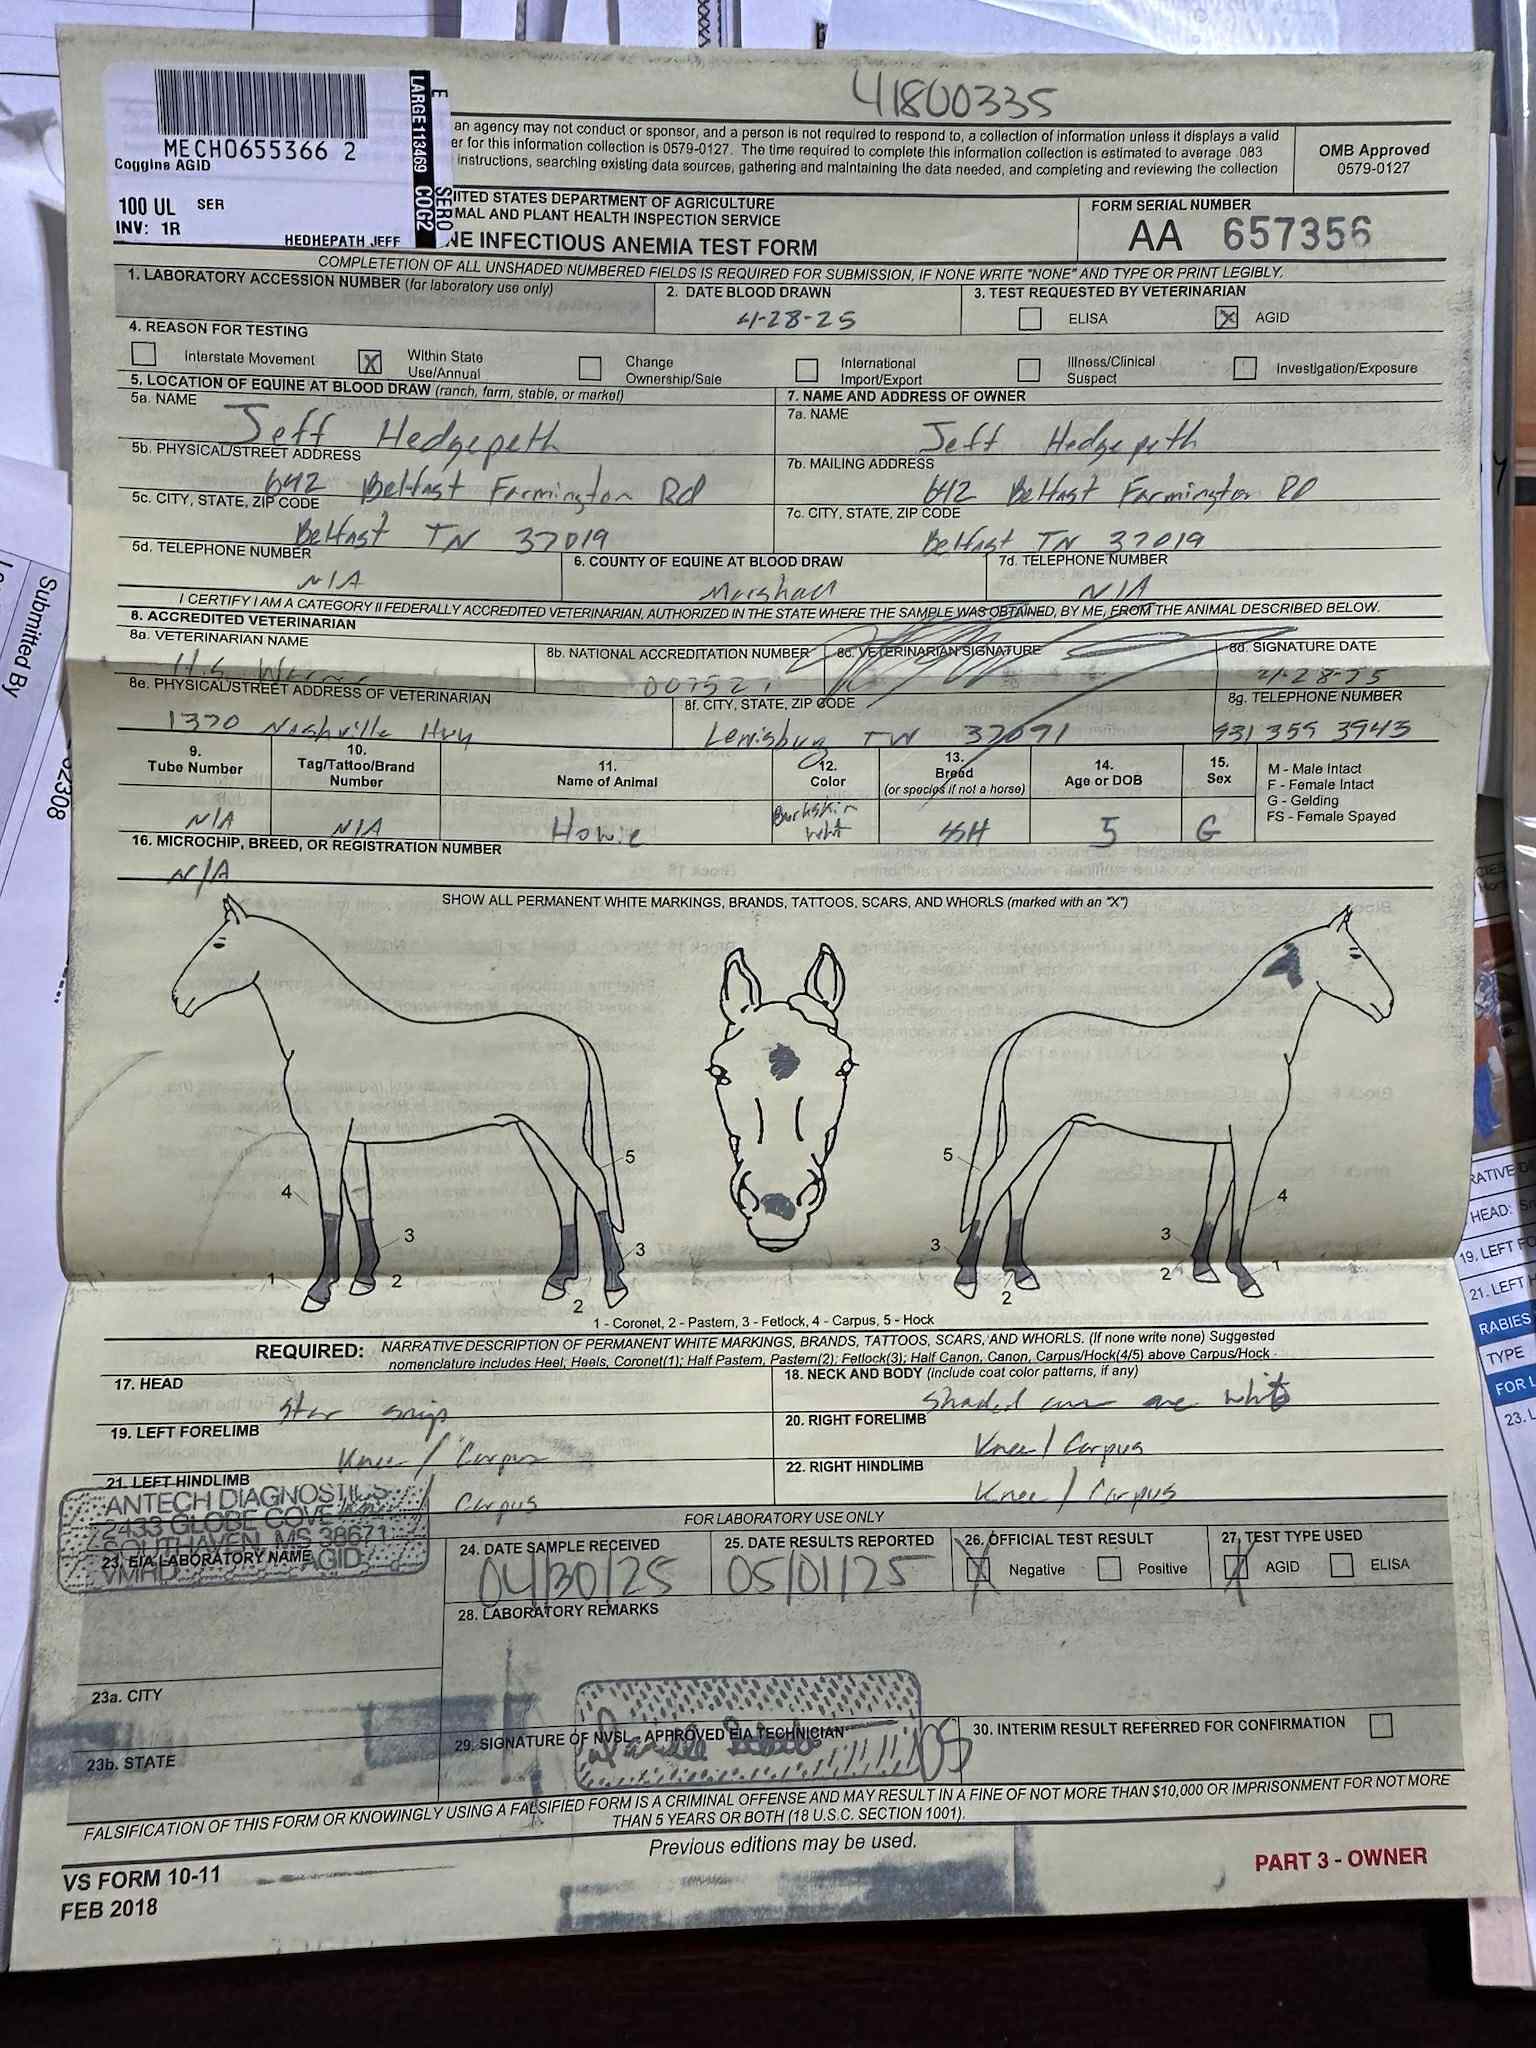 41800335
MECH0655366 2
Coggins AGID
100 UL SER
INV: 1R
HEDHEPATH JEFF
LARGE113469 COG2
E SERO
an agency may not conduct or sponsor, and a person is not required to respond to, a collection of information unless it displays a valid
er for this information collection is 0579-0127. The time required to complete this information collection is estimated to average .083
instructions, searching existing data sources, gathering and maintaining the data needed, and completing and reviewing the collection
OMB Approved
0579-0127
ITED STATES DEPARTMENT OF AGRICULTURE
MAL AND PLANT HEALTH INSPECTION SERVICE
NE INFECTIOUS ANEMIA TEST FORM
FORM SERIAL NUMBER
AA 657356
COMPLETETION OF ALL UNSHADED NUMBERED FIELDS IS REQUIRED FOR SUBMISSION, IF NONE WRITE "NONE" AND TYPE OR PRINT LEGIBLY.
1. LABORATORY ACCESSION NUMBER (for laboratory use only)
2. DATE BLOOD DRAWN
4-28-25
3. TEST REQUESTED BY VETERINARIAN
ELISA
X AGID
4. REASON FOR TESTING
Interstate Movement
X Within State
Use/Annual
Change
Ownership/Sale
International
Import/Export
Illness/Clinical
Suspect
Investigation/Exposure
5. LOCATION OF EQUINE AT BLOOD DRAW (ranch, farm, stable, or market)
5a. NAME
Jeff Hedgepeth
5b. PHYSICAL/STREET ADDRESS
642 Belfast Farmington Rd
5c. CITY, STATE, ZIP CODE
Belfast TN 37019
5d. TELEPHONE NUMBER
N/A
6. COUNTY OF EQUINE AT BLOOD DRAW
Marshall
7. NAME AND ADDRESS OF OWNER
7a. NAME
Jeff Hedgepeth
7b. MAILING ADDRESS
642 Belfast Farmington RD
7c. CITY, STATE, ZIP CODE
Belfast TN 37019
7d. TELEPHONE NUMBER
N/A
I CERTIFY I AM A CATEGORY II FEDERALLY ACCREDITED VETERINARIAN, AUTHORIZED IN THE STATE WHERE THE SAMPLE WAS OBTAINED, BY ME, FROM THE ANIMAL DESCRIBED BELOW.
8. ACCREDITED VETERINARIAN
8a. VETERINARIAN NAME
H.S. Warner
8b. NATIONAL ACCREDITATION NUMBER
007527
8c. VETERINARIAN SIGNATURE
8d. SIGNATURE DATE
4-28-25
8e. PHYSICAL/STREET ADDRESS OF VETERINARIAN
1370 Nashville Hwy
8f. CITY, STATE, ZIP CODE
Lewisburg TN 37091
8g. TELEPHONE NUMBER
931 359 3943
9.
Tube Number
N/A
10.
Tag/Tattoo/Brand
Number
N/A
11.
Name of Animal
Howie
12.
Color
Buckskin
wht
13.
Breed
(or species if not a horse)
SSH
14.
Age or DOB
5
15.
Sex
G
M - Male Intact
F - Female Intact
G - Gelding
FS - Female Spayed
16. MICROCHIP, BREED, OR REGISTRATION NUMBER
N/A
SHOW ALL PERMANENT WHITE MARKINGS, BRANDS, TATTOOS, SCARS, AND WHORLS (marked with an "X")
5 5
4 4
3 3 3 3
1 2 2 2 2 1
1 - Coronet, 2 - Pastern, 3 - Fetlock, 4 - Carpus, 5 - Hock
REQUIRED: NARRATIVE DESCRIPTION OF PERMANENT WHITE MARKINGS, BRANDS, TATTOOS, SCARS, AND WHORLS. (If none write none) Suggested
nomenclature includes Heel, Heels, Coronet(1); Half Pastern, Pastern(2); Fetlock(3); Half Canon, Canon, Carpus/Hock(4/5) above Carpus/Hock
17. HEAD
Star snip
18. NECK AND BODY (include coat color patterns, if any)
Shaded are white
19. LEFT FORELIMB
Knee/Carpus
20. RIGHT FORELIMB
Knee/Carpus
21. LEFT HINDLIMB
/ Carpus
22. RIGHT HINDLIMB
Knee/Carpus
FOR LABORATORY USE ONLY
ANTECH DIAGNOSTICS
2433 GLOBE COVE
SOUTHAVEN, MS 38671
VMRD AGID
23. EIA LABORATORY NAME
24. DATE SAMPLE RECEIVED
04/30/25
25. DATE RESULTS REPORTED
05/01/25
26. OFFICIAL TEST RESULT
X Negative
Positive
27. TEST TYPE USED
X AGID
ELISA
28. LABORATORY REMARKS
23a. CITY
23b. STATE
29. SIGNATURE OF NVSL - APPROVED EIA TECHNICIAN
DS
30. INTERIM RESULT REFERRED FOR CONFIRMATION
FALSIFICATION OF THIS FORM OR KNOWINGLY USING A FALSIFIED FORM IS A CRIMINAL OFFENSE AND MAY RESULT IN A FINE OF NOT MORE THAN $10,000 OR IMPRISONMENT FOR NOT MORE
THAN 5 YEARS OR BOTH (18 U.S.C. SECTION 1001).
Previous editions may be used.
VS FORM 10-11
FEB 2018
PART 3 - OWNER
Submitted By
HEAD:
19. LEFT FO
21. LEFT
RABIES
TYPE
FOR L
23.